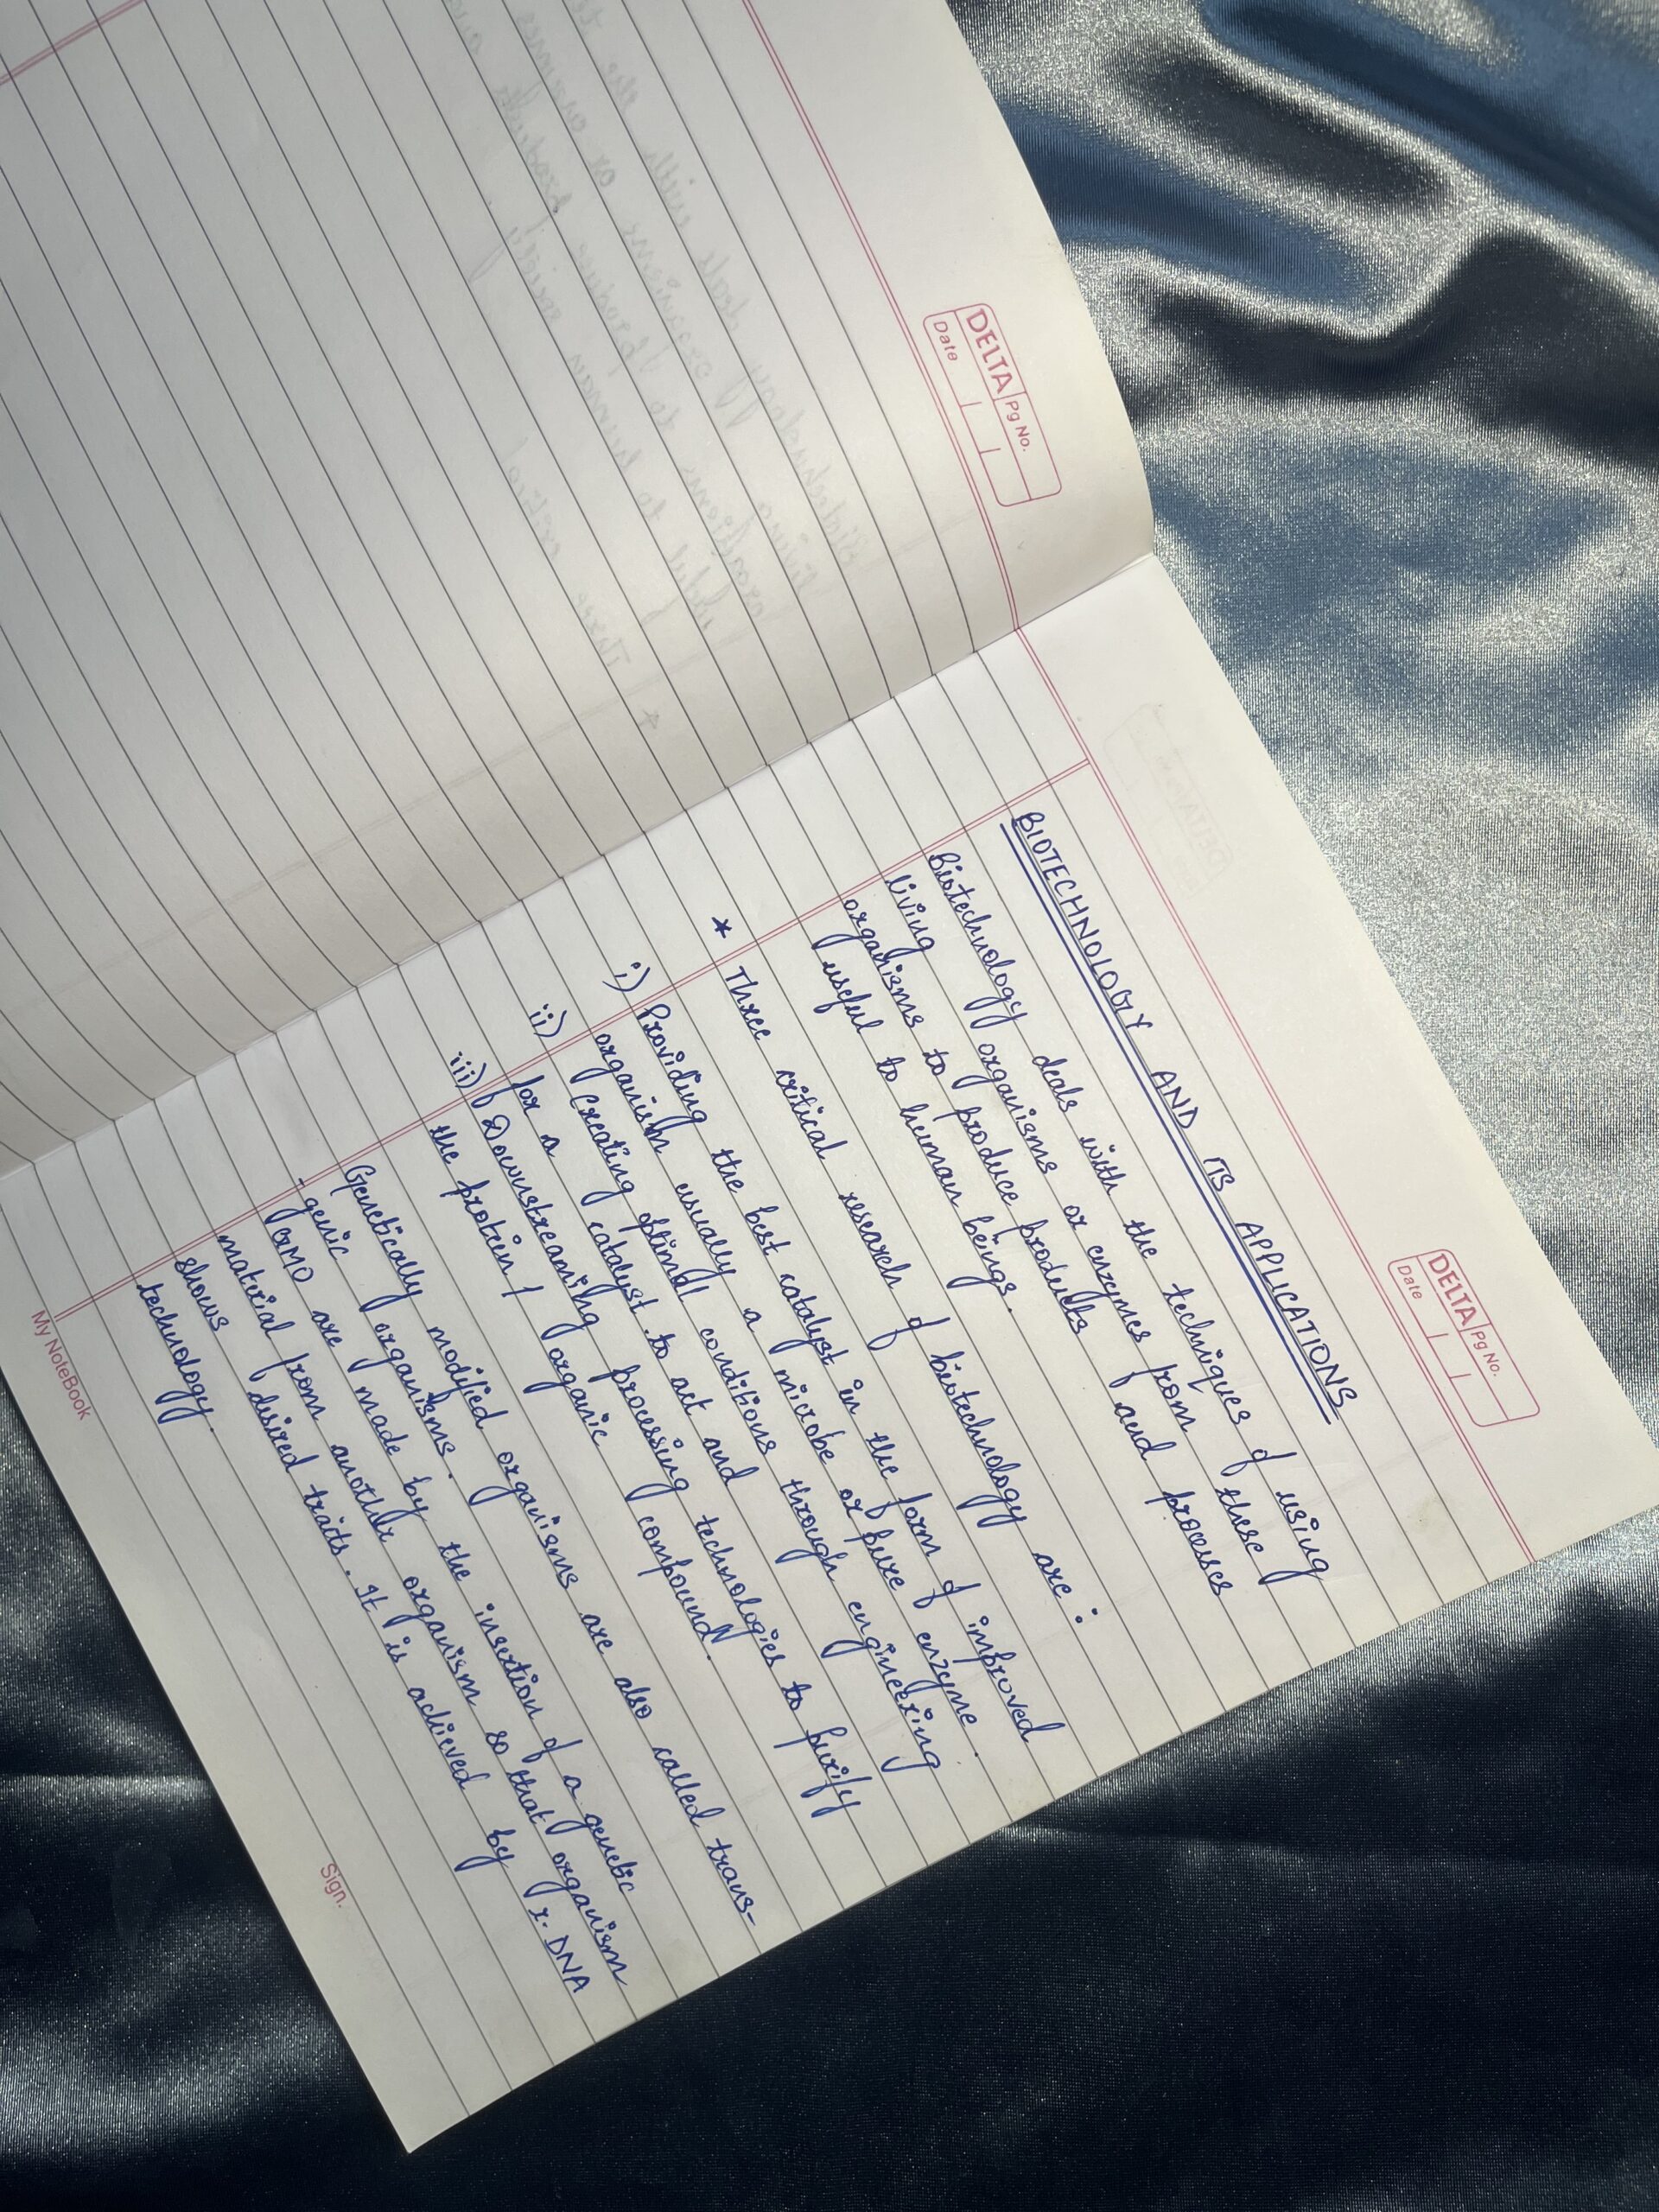 DELTA Pg No.
Date
DELTA Pg No.
Date
BIOTECHNOLOGY AND ITS APPLICATIONS
Biotechnology deals with the techniques of using
living organisms or enzymes from these
organisms to produce products and processes
useful to human beings.
* Three critical research of biotechnology are :
i) Providing the best catalyst in the form of improved
organism usually a microbe or pure enzyme.
ii) Creating optimal conditions through engineering
for a catalyst to act and
iii) Downstreaming processing technologies to purify
the protein / organic compound.
Genetically modified organisms are also called trans-
-genic organisms.
GMO are made by the insertion of a genetic
material from another organism so that organism
shows desired traits. It is achieved by r. DNA
technology.
My NoteBook
Sign.